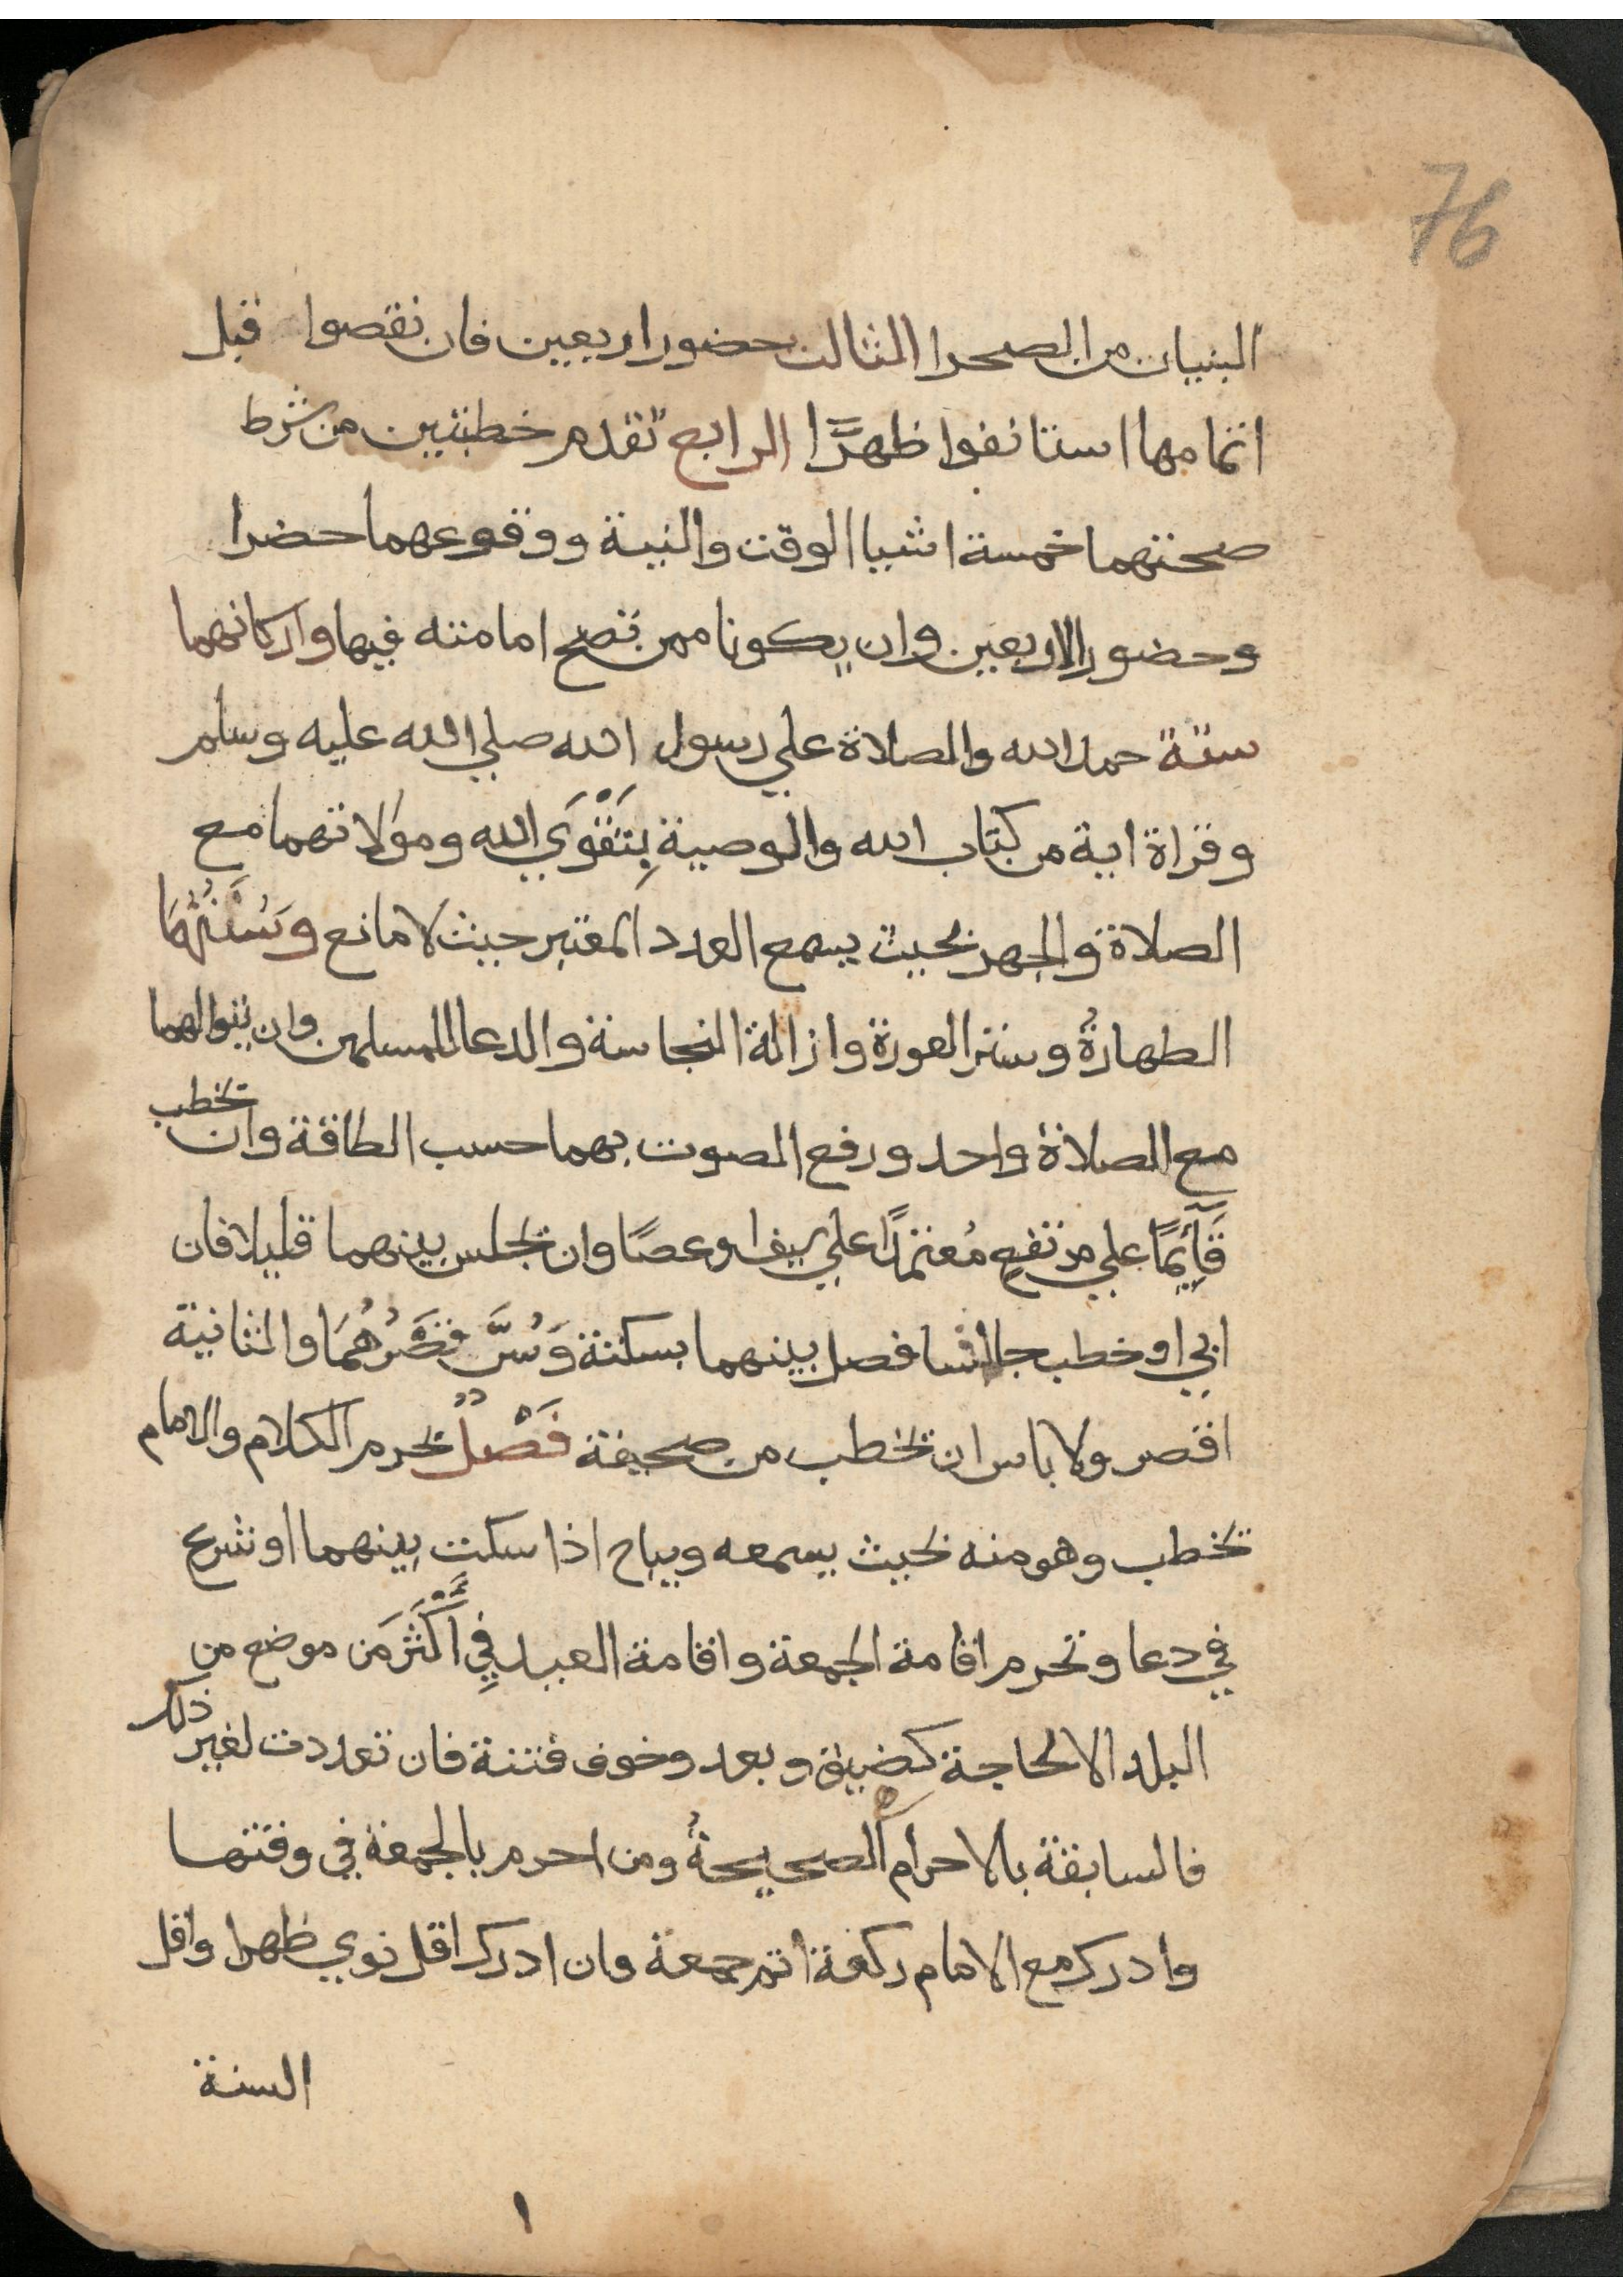 76
البنيان من الصحرا الثالث حضور اربعين فان نقصوا قبل
اتمامها استانفوا ظهرًا الرابع تقدم خطبتين من شرط
صحتهما خمسة اشيا الوقت والنية ووقوعهما حضرا
وحضور الاربعين وان يكونا ممن تصح امامته فيها واركانهما
ستة حمد الله والصلاة علي رسول الله صلي الله عليه وسلم
وقراة اية من كتاب الله والوصية بِتَقْوَي الله وموالاتهما مع
الصلاة والجهر بحيث يسمع العدد المعتبر حيث لا مانع وَسُنَنُهُمَا
الطهارةُ وستر العورة وازالة النجاسة والدعا للمسلمين وان يتوالهما
مع الصلاة واحد ورفع الصوت بهما حسب الطاقة وان يخطب
قَآئِمًا علي مرتفعٍ مُعتمدًا علي سيف او عصًا وان يجلس بينهما قليلا فان
ابي او خطب جالسا فصل بينهما بسكتة وَسُنَّ قصْرُهُمَا والثانية
اقصر ولا باس ان يخطب من صحيفة فَصْلٌ يحرم الكلام والامام
يخطب وهو منه بحيث يسمعه ويباح اذا سكت بينهما او شرع
في دعا وتحرم اقامة الجمعة واقامة العيد فِي أَكْثَرَ مَن موضع من
البلد الا لحاجة كضيق وبعد وخوف فتنة فان تعددت لغير ذلك
فالسابقة بالاحرام الصحيحةُ ومن احرم بالجمعة في وقتها
وادرك مع الامام ركعة اتم جمعة وان ادرك اقل نوي ظهرا واقل
السنة